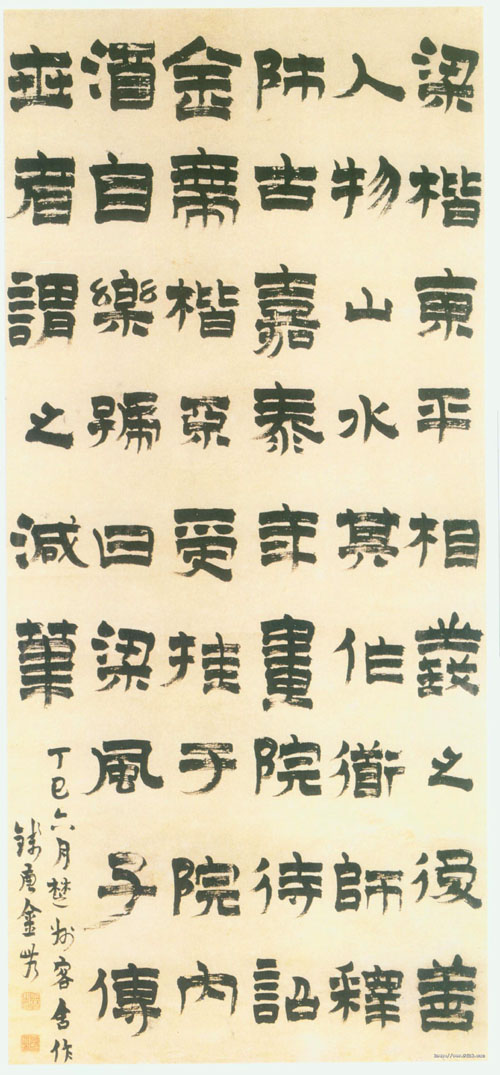 梁楷東平相之後善
人物山水其作衟師釋
師古嘉泰年畫院待詔
金帶楷受挂于院内
自樂號曰梁風子傳
世者謂之減筆
丁巳六月楚州客舍作
錢唐金農